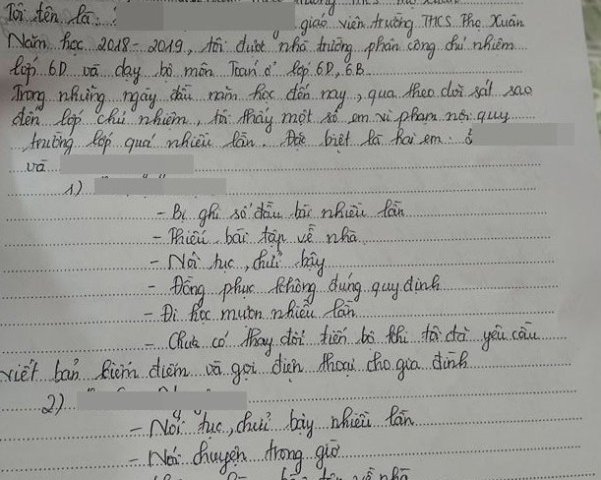 Tôi tên là: giáo viên trường THCS Phạ Xuân
Năm học 2018 - 2019, tôi được nhà trường phân công chủ nhiệm
lớp 6D và dạy bộ môn Toán ở lớp 6D, 6B
Trong những ngày đầu năm học đến nay, qua theo dõi sát sao
đến lớp chủ nhiệm, tôi thấy một số em vi phạm nội quy
trường lớp quá nhiều lần. Đặc biệt là hai em:
và
1)
- Bị ghi sổ đầu bài nhiều lần
- Thiếu bài tập về nhà
- Nói tục, chửi bậy
- Đồng phục không đúng quy định
- Đi học muộn nhiều lần
- Chưa có thay đổi tiến bộ khi tôi đã yêu cầu
viết bản kiểm điểm và gọi điện thoại cho gia đình
2)
- Nói tục, chửi bậy nhiều lần
- Nói chuyện trong giờ
về nhà